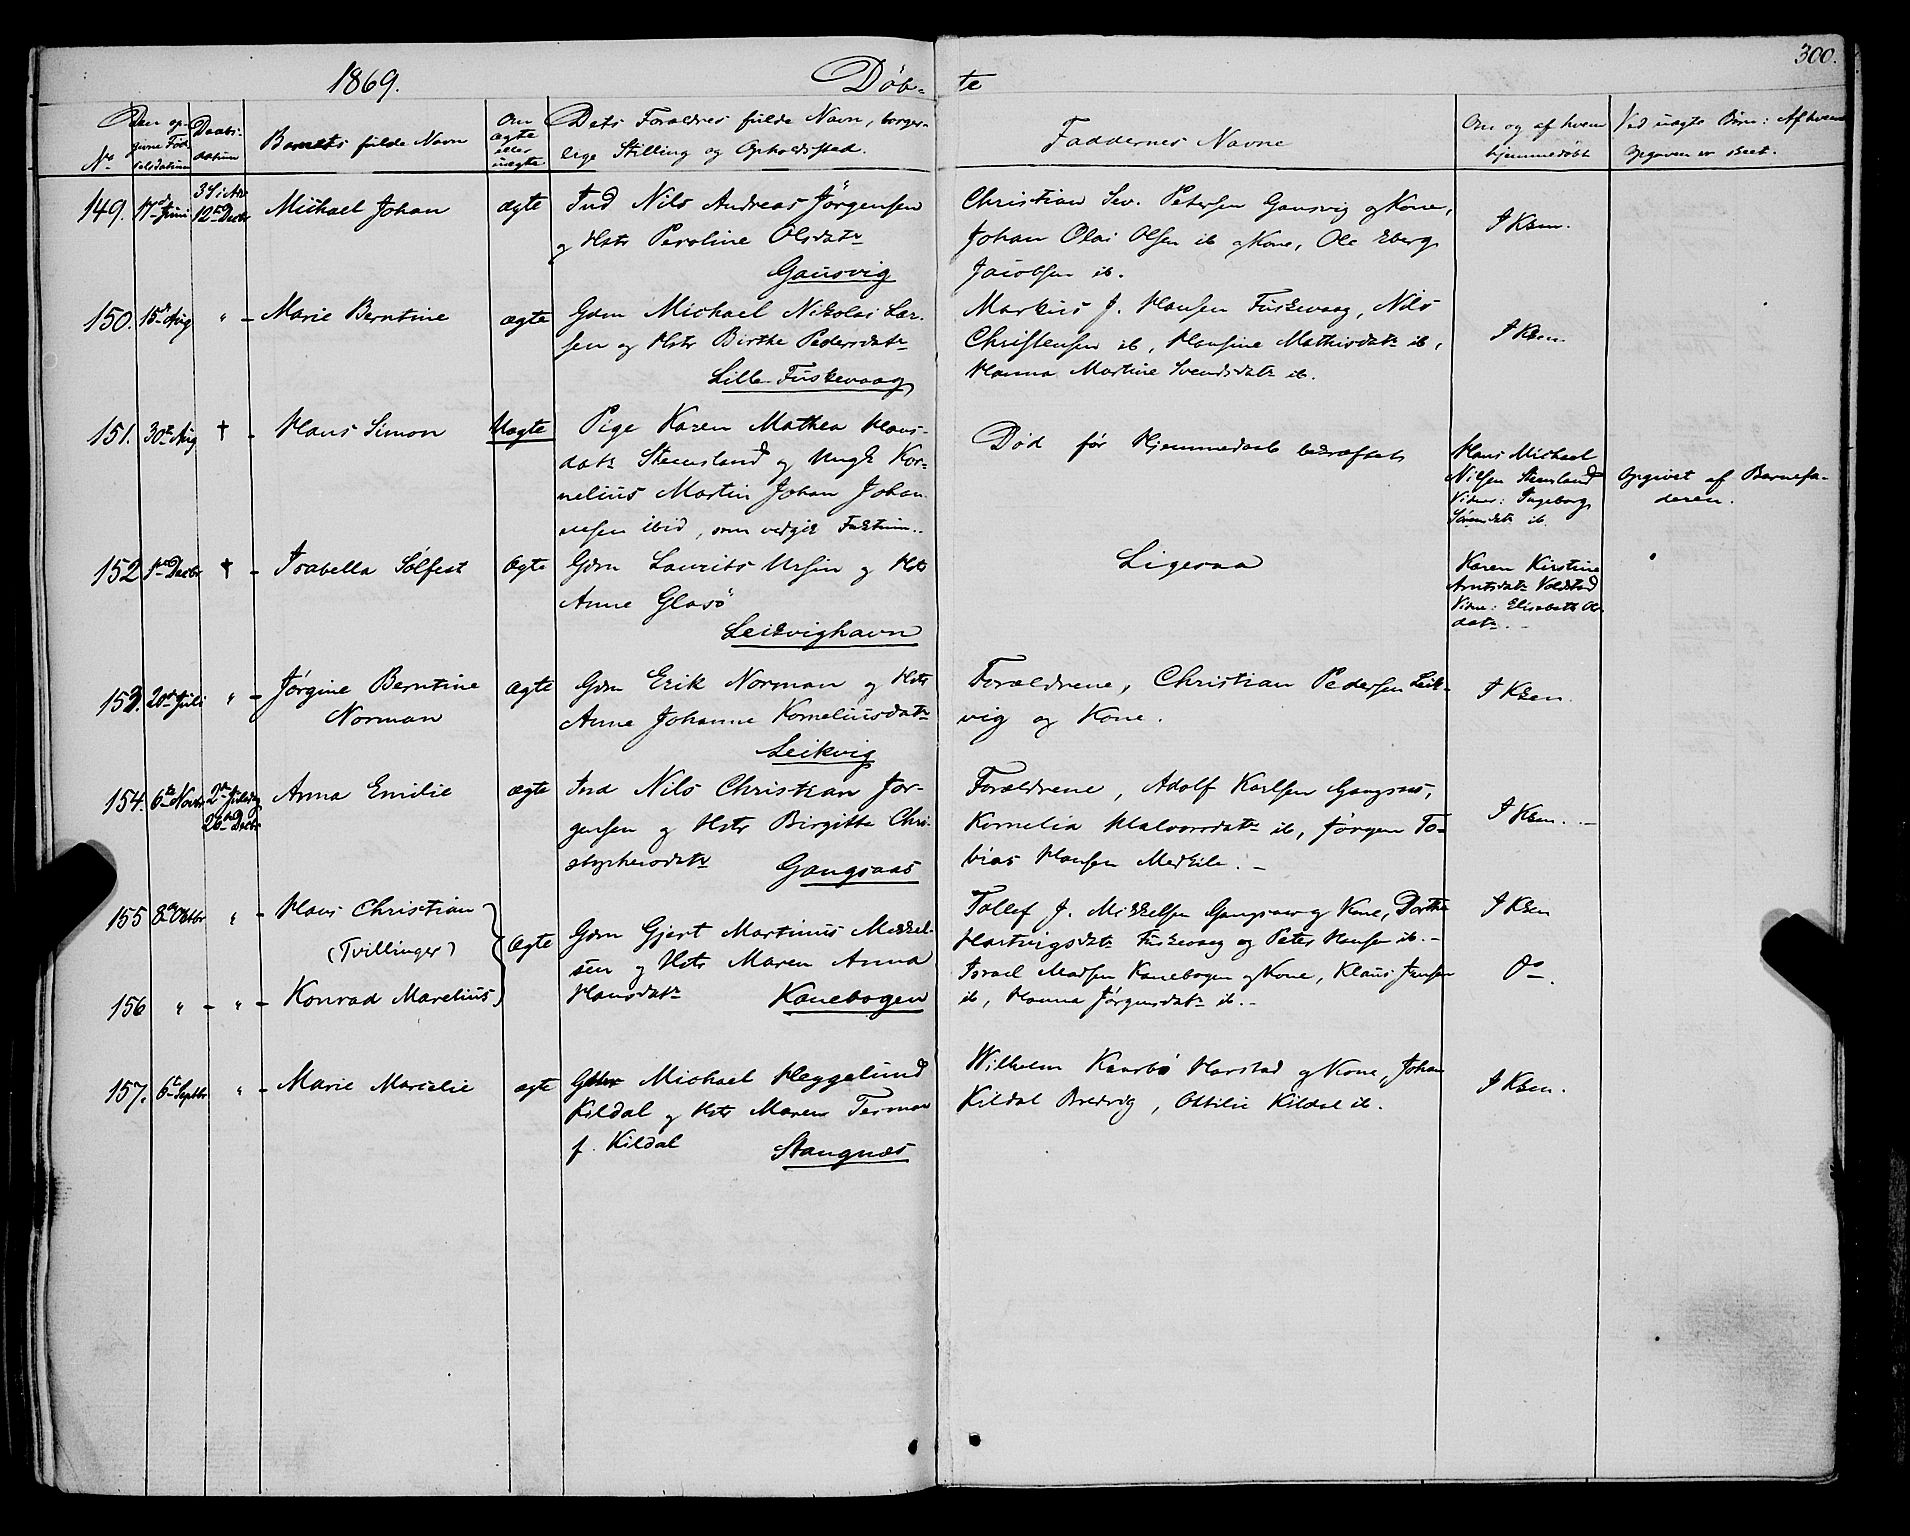 1869. Døb- te 300.
No
Den op-
givne Fød
selsdatum
Daabs-
datum
Barnets fulde Navn
Om
ægte
eller
uægte
Dets Forældres fulde Navn, borger-
lige Stilling og Opholdssted.
Faddernes Navne
Om og af hvem
hjemmedøbt
Ved uægte Børn: Af hvem
Opgaven er skeet.
149. 17de Juni
12te Decbr
Michael Johan
ægte
Ind Nils Andreas Jörgensen
og Hstr Peroline Olsdatr
Gausvig
Christian Sev. Petersen Gausvig og Kone,
Johan Olai Olsen ib og Kone, Ole Eberg
Jacobsen ib.
I Ksen.
150. 15de Aug
" -
Marie Berntine
ægte
Gdm Michael Nikolai Lar-
sen og Hstr Birthe Pedersdatr
Lille Fuskevaag
Markus J. Hansen Fuskevaag, Nils
Christensen ib, Hansine Mathisdatr ib,
Hanna Martine Svendsdatr ib.
I Ksen.
151. 30te Aug
† -
Hans Simon
Uægte
Pige Karen Mathea Hans-
datr Steensland og Ungk Kor-
nelius Martin Johan Johan
nesen ibid, som vedgik Faktum..
Død før Hjemmedaab bekræftet
Hans Michael
Nilsen Steensland
Vidner: Ingeborg
Sörensdatr ib.
Opgivet af Barnefa-
deren.
152 1ste Decbr
† -
Isabella Sölfest
ægte
Gdm Laurits Ursin og Hstr
Anne Glasö
Leikvighavn
Ligesaa
Karen Kirstine
Arntsdatr Voldstad
Vidne: Elisabeth Ols
datr. -
153. 20de Juli
" -
Jörgine Berntine
Norman
ægte
Gdm Erik Norman og Hstr
Anne Johanne Korneliusdatr
Leikvig
Forældrene, Christian Pedersen Leik-
vig og Kone.
I Ksen.
154. 6te Novbr
2den Juledag
26de Decbr
Anna Emilie
ægte
Ind Nils Christian Jör-
gensen og Hstr Birgitte Chri-
stophersdatr
Gangsaas
Forældrene, Adolf Karlsen Gangsaas,
Kornelia Halvorsdatr ib, Jörgen To-
bias Hansen Medkile. -
I Ksen. -
155 8de Oktbr
" -
Hans Christian
(Tvillinger)
156 " - " -
Konrad Marelius
ægte
Gdm Gjert Martinus Mikkel-
sen og Hstr Maren Anna
Hansdatr
Kanebogen
Tollef J. Mikkelsen Gangsaas og Kone, Dorthe
Hartvigsdatr Fuskevaag og Peter Hansen ib. -
Israel Madsen Kanebogen og Kone, Klaus Jensen
ib, Hanna Jörgensdatr ib. -
I Ksen
Do.
157. 6te Septbr
" -
Marie Marcelie
ægte
Michael Heggelund
Kildal og Hstr Maren
f. Kildal
Stangnæs
Wilhelm Kaarbö Harstad og Kone, Johan
Kildal Bredvig, Ottilie Kildal ib.
I Ksen.